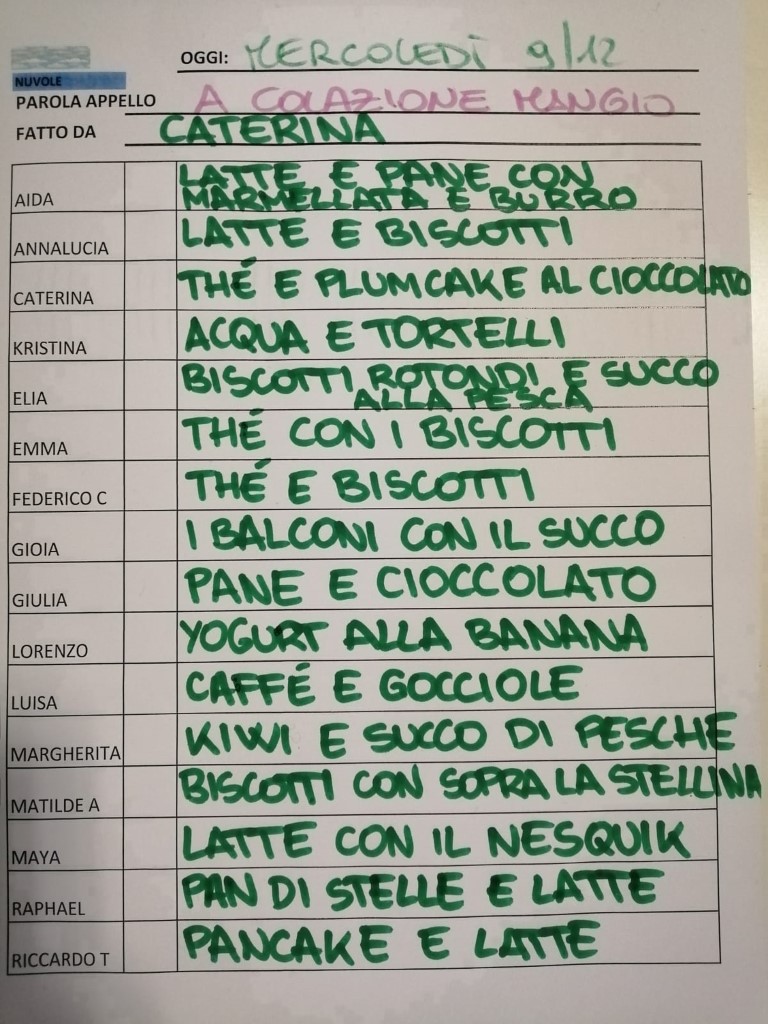 OGGI: MERCOLEDÌ 9/12
NUVOLE
PAROLA APPELLO A COLAZIONE MANGIO
FATTO DA CATERINA
AIDA LATTE E PANE CON
MARMELLATA E BURRO
ANNALUCIA LATTE E BISCOTTI
CATERINA THÉ E PLUMCAKE AL CIOCCOLATO
KRISTINA ACQUA E TORTELLI
ELIA BISCOTTI ROTONDI E SUCCO
ALLA PESCA
EMMA THÉ CON I BISCOTTI
FEDERICO C THÉ E BISCOTTI
GIOIA I BALCONI CON IL SUCCO
GIULIA PANE E CIOCCOLATO
LORENZO YOGURT ALLA BANANA
LUISA CAFFÉ E GOCCIOLE
MARGHERITA KIWI E SUCCO DI PESCHE
MATILDE A BISCOTTI CON SOPRA LA STELLINA
MAYA LATTE CON IL NESQUIK
RAPHAEL PAN DI STELLE E LATTE
RICCARDO T PANCAKE E LATTE